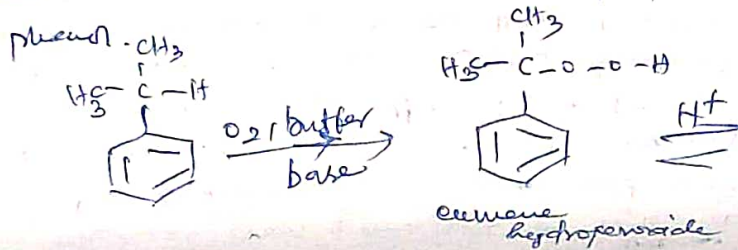 phenol.
CH3
H3C - C - H
O2, buffer
base
CH3
H3C - C - O - O - H
H+
cumene
hydroperoxide